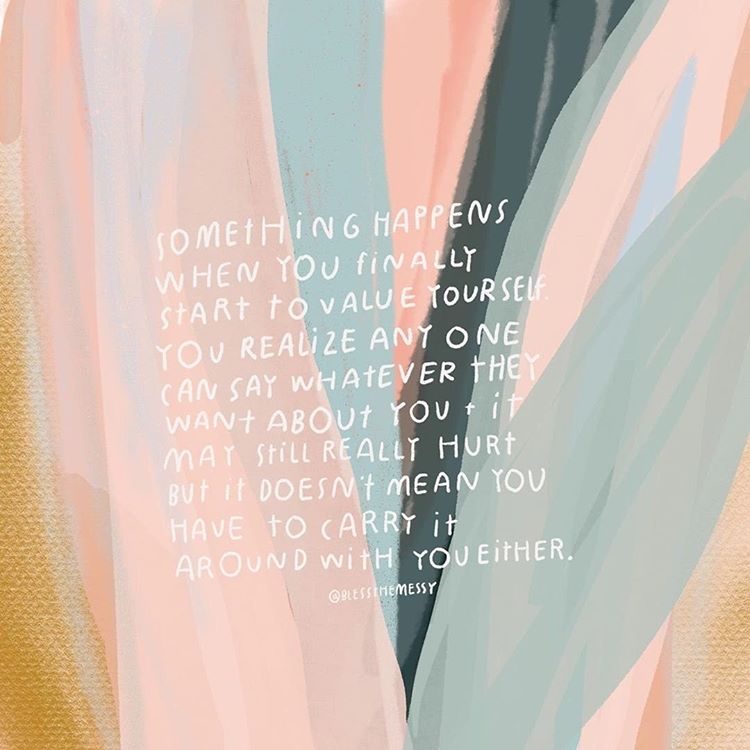 SOMETHING HAPPENS
WHEN YOU FINALLY
START TO VALUE YOURSELF.
YOU REALIZE ANY ONE
CAN SAY WHATEVER THEY
WANT ABOUT YOU + IT
MAY STILL REALLY HURT
BUT IT DOESN'T MEAN YOU
HAVE TO CARRY IT
AROUND WITH YOU EITHER.
@BLESSTHEMESSY